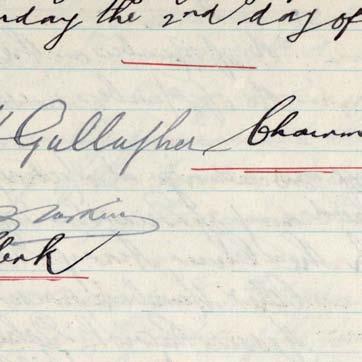 nday the 2nd day of
Gallagher Chairm
Clerk